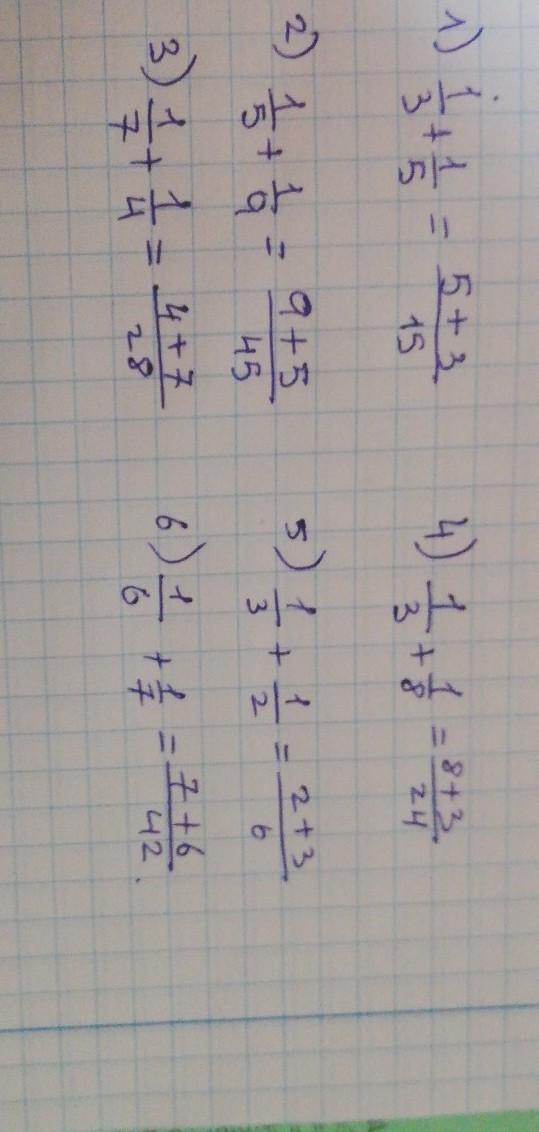 1) 1/3 + 1/5 = (5+3)/15
2) 1/5 + 1/9 = (9+5)/45
3) 1/7 + 1/4 = (4+7)/28
4) 1/3 + 1/8 = (8+3)/24
5) 1/3 + 1/2 = (2+3)/6
6) 1/6 + 1/7 = (7+6)/42